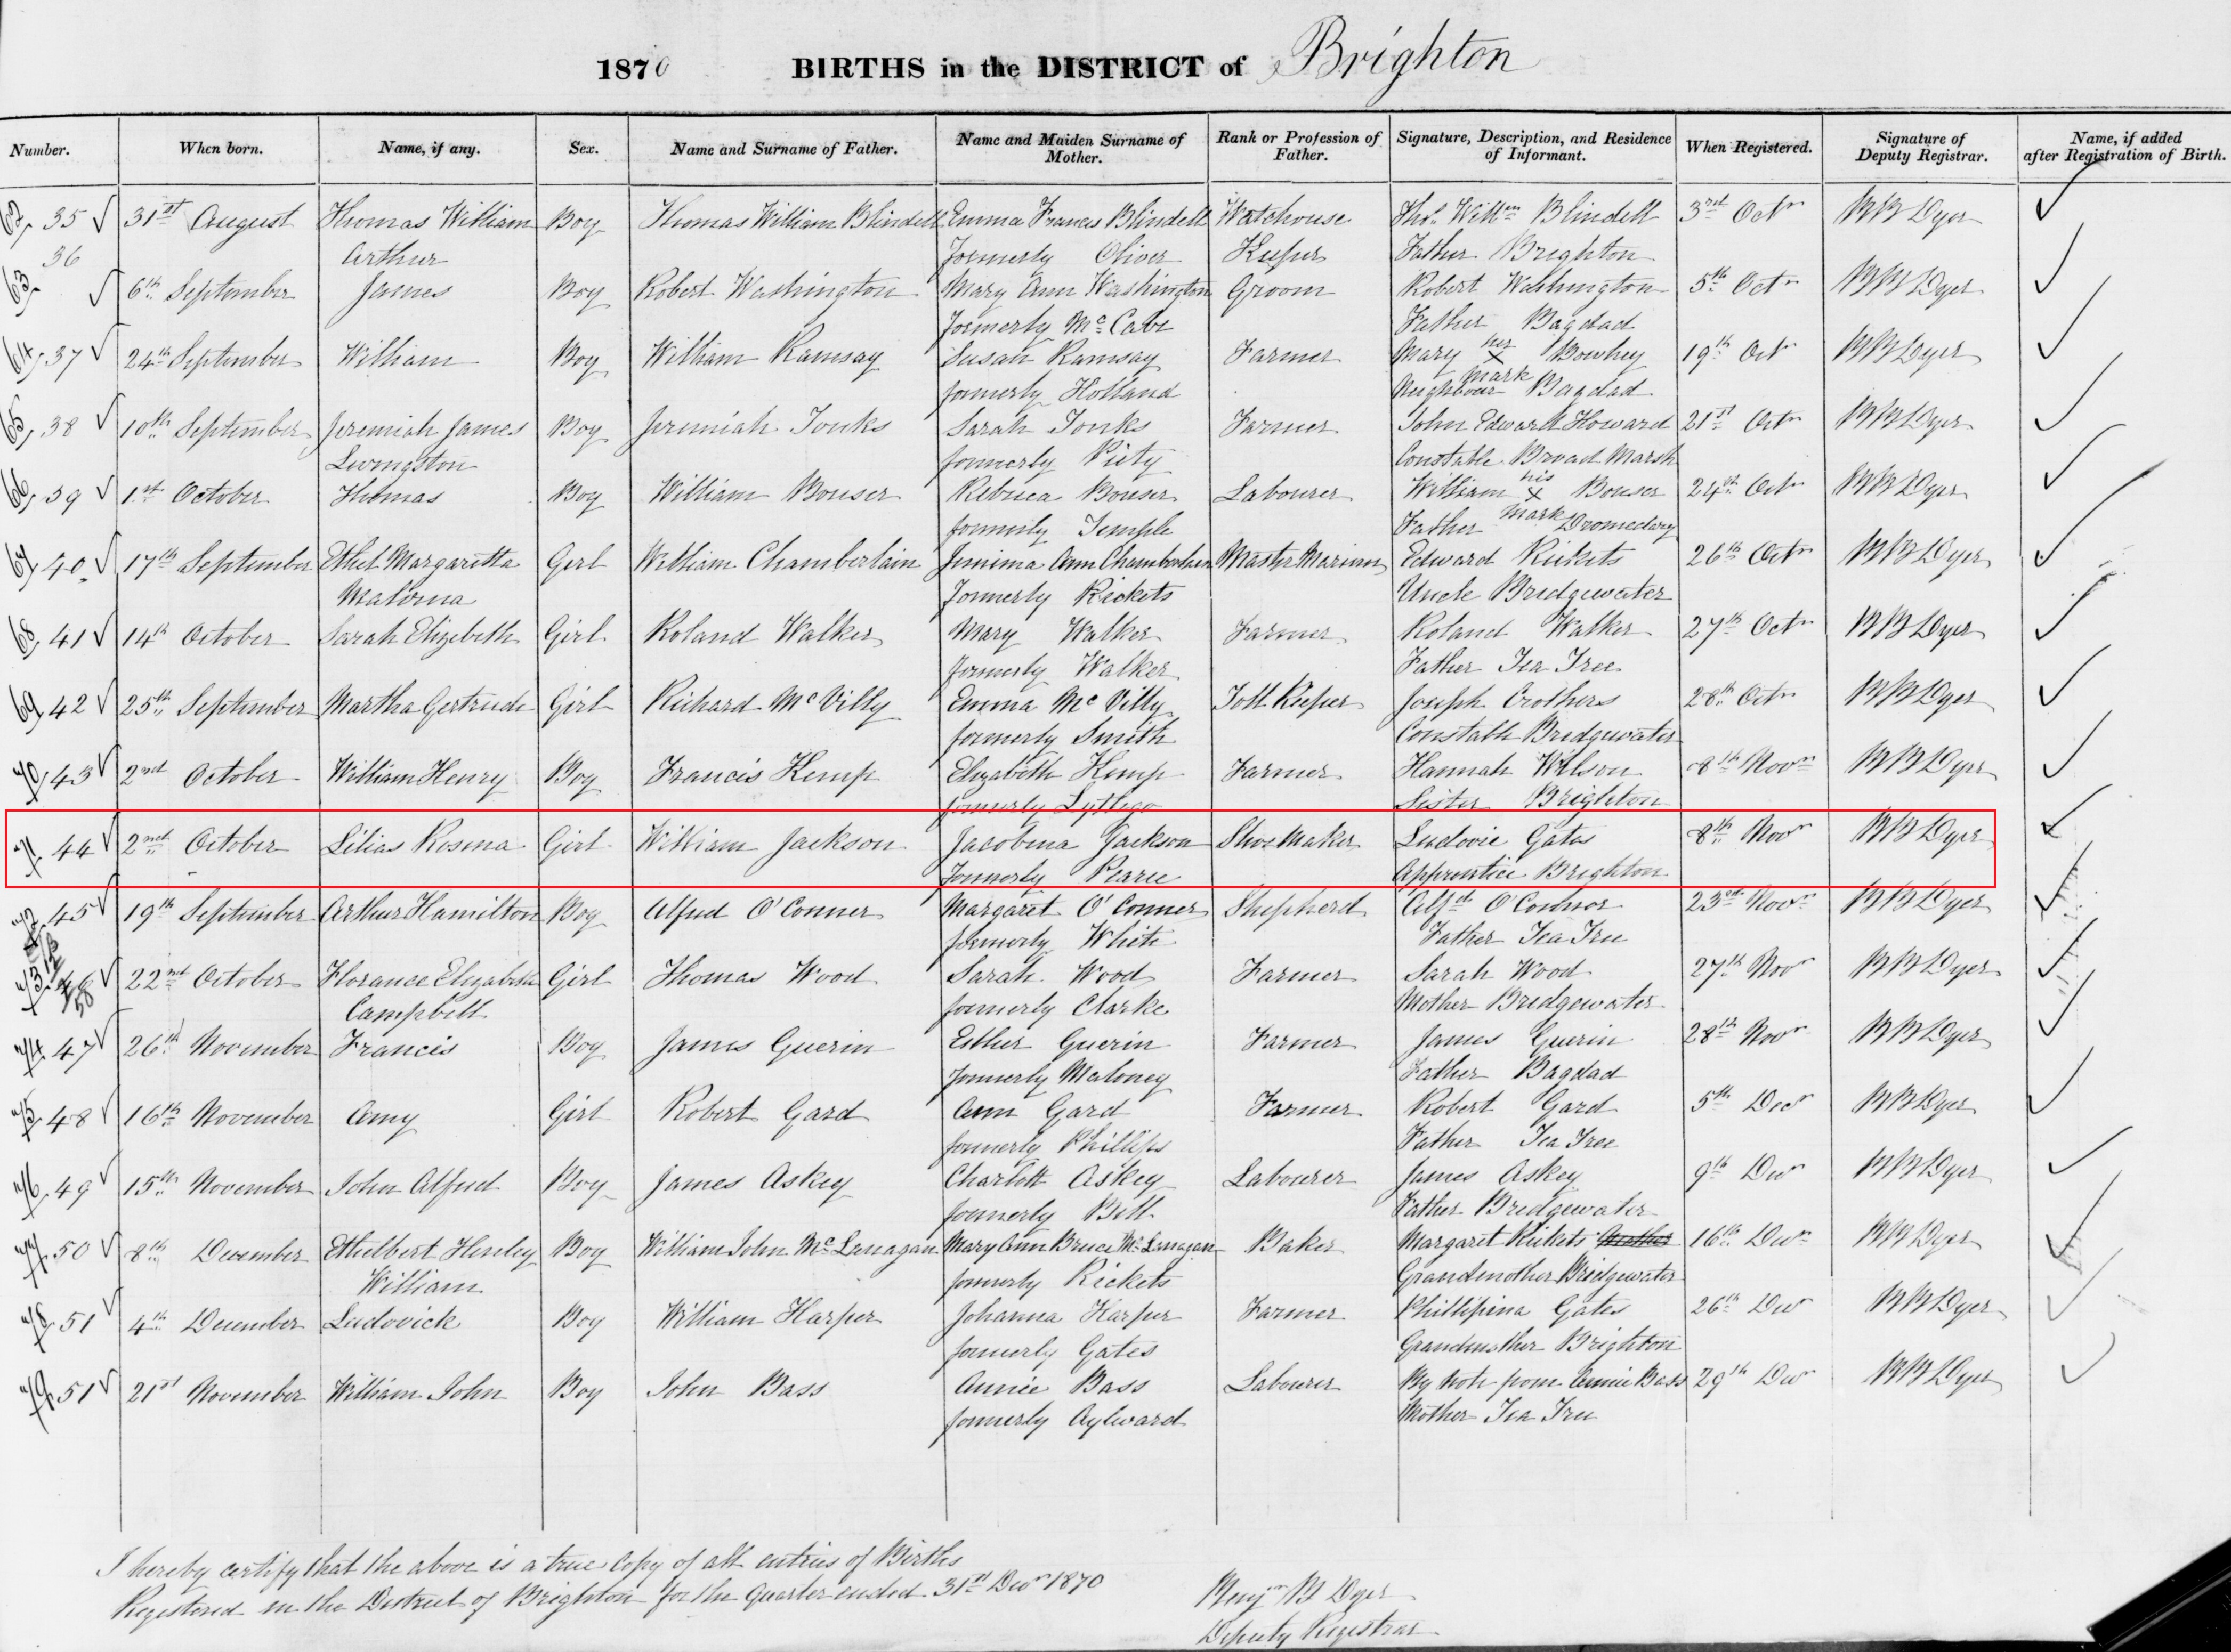 1870 BIRTHS in the DISTRICT of Brighton
Number. When born. Name, if any. Sex. Name and Surname of Father. Name and Maiden Surname of Mother. Rank or Profession of Father. Signature, Description, and Residence of Informant. When Registered. Signature of Deputy Registrar. Name, if added after Registration of Birth.
62, 35 ✓ 31st August Thomas William Boy Thomas William Blindell Emma Frances Blindell Watchouse Thos. Willm Blindell 3rd Octr BB Dyer ✓
36 Arthur Formerly Oliver Keeper Father Brighton
63, ✓ 6th September James Boy Robert Washington Mary Ann Washington Groom Robert Washington 5th Octr BB Dyer ✓
formerly McCabe Father Bagdad
64, 37 ✓ 24th September William Boy William Ramsay Susan Ramsay Farmer Mary her X Bowhey 19th Oct BB Dyer ✓
formerly Holland mark Neighbour Bagdad
65, 38 ✓ 10th September Jeremiah James Boy Jeremiah Tonks Sarah Tonks Farmer John Edward Howard 21st Octr BB Dyer ✓
Levingston formerly Piety Constable Broad Marsh
66, 39 ✓ 1st October Thomas Boy William Bouser Rebecca Bouser Labourer William his X Bouser 24th Octr BB Dyer ✓
formerly Temple Father mark Dromedary
67 40 ✓ 17th September Ethel Margaretta Girl William Chamberlain Jemima Ann Chamberlain Master Mariner Edward Rickets 26th Octr BB Dyer ✓
Malvina Formerly Rickets Uncle Bridgewater
68, 41 ✓ 14th October Sarah Elizebeth Girl Roland Walker Mary Walker Farmer Roland Walker 27th Octr BB Dyer ✓
formerly Walker Father Tea Tree
69, 42 ✓ 25th September Martha Gertrude Girl Richard McVilly Emma McVilly Toll Keeper Joseph Crothers 28th Octr BB Dyer ✓
formerly Smith Constable Bridgewater
70, 43 ✓ 2nd October William Henry Boy Francis Kemp Elizabeth Kemp Farmer Hannah Wilson 8th Novr BB Dyer ✓
formerly Lythgo Sister Brighton
71 44 ✓ 2nd October Lilias Rosina Girl William Jackson Jacobina Jackson Shoe Maker Ludovic Gates 8th Novr BB Dyer ✓
Formerly Pearce Apprentice Brighton
72 45 ✓ 19th September Arthur Hamilton Boy Alfred O'Conner Margaret O'Conner Shepherd Alfd O'Connor 23rd Novr BB Dyer ✓
formerly White Father Tea Tree
73 46 ✓ 22nd October Florance Elizabeth Girl Thomas Wood Sarah Wood Farmer Sarah Wood 27th Novr BB Dyer ✓
58 Campbell formerly Clarke Mother Bridgewater
74 47 ✓ 26th November Francis Boy James Guerin Esther Guerin Farmer James Guerin 28th Novr BB Dyer ✓
formerly Maloney Father Bagdad
75 48 ✓ 16th November Amy Girl Robert Gard Ann Gard Farmer Robert Gard 5th Decr BB Dyer ✓
formerly Phillips Father Tea Tree
76, 49 ✓ 15th November John Alfred Boy James Askey Charlott Askey Labourer James Askey 9th Decr BB Dyer ✓
formerly Bell Father Bridgewater
77, 50 ✓ 8th December Ethelbert Henley Boy William John McLanagan Mary Ann Bruce McLanagan Baker Margaret Rickets Mother 16th Decr BB Dyer ✓
William formerly Rickets Grandmother Bridgewater
78 51 ✓ 4th December Ludovick Boy William Harper Johanna Harper Farmer Phillipina Gates 26th Decr BB Dyer ✓
formerly Gates Grandmother Brighton
79, 51 ✓ 21st November William John Boy John Bass Annie Bass Labourer By Note from Annie Bass 29th Decr BB Dyer ✓
formerly Aylward Mother Tea Tree
I hereby certify that the above is a true copy of all entries of Births
Registered in the District of Brighton for the Quarter ended 31st Decr 1870
Benjn B Dyer
Deputy Registrar